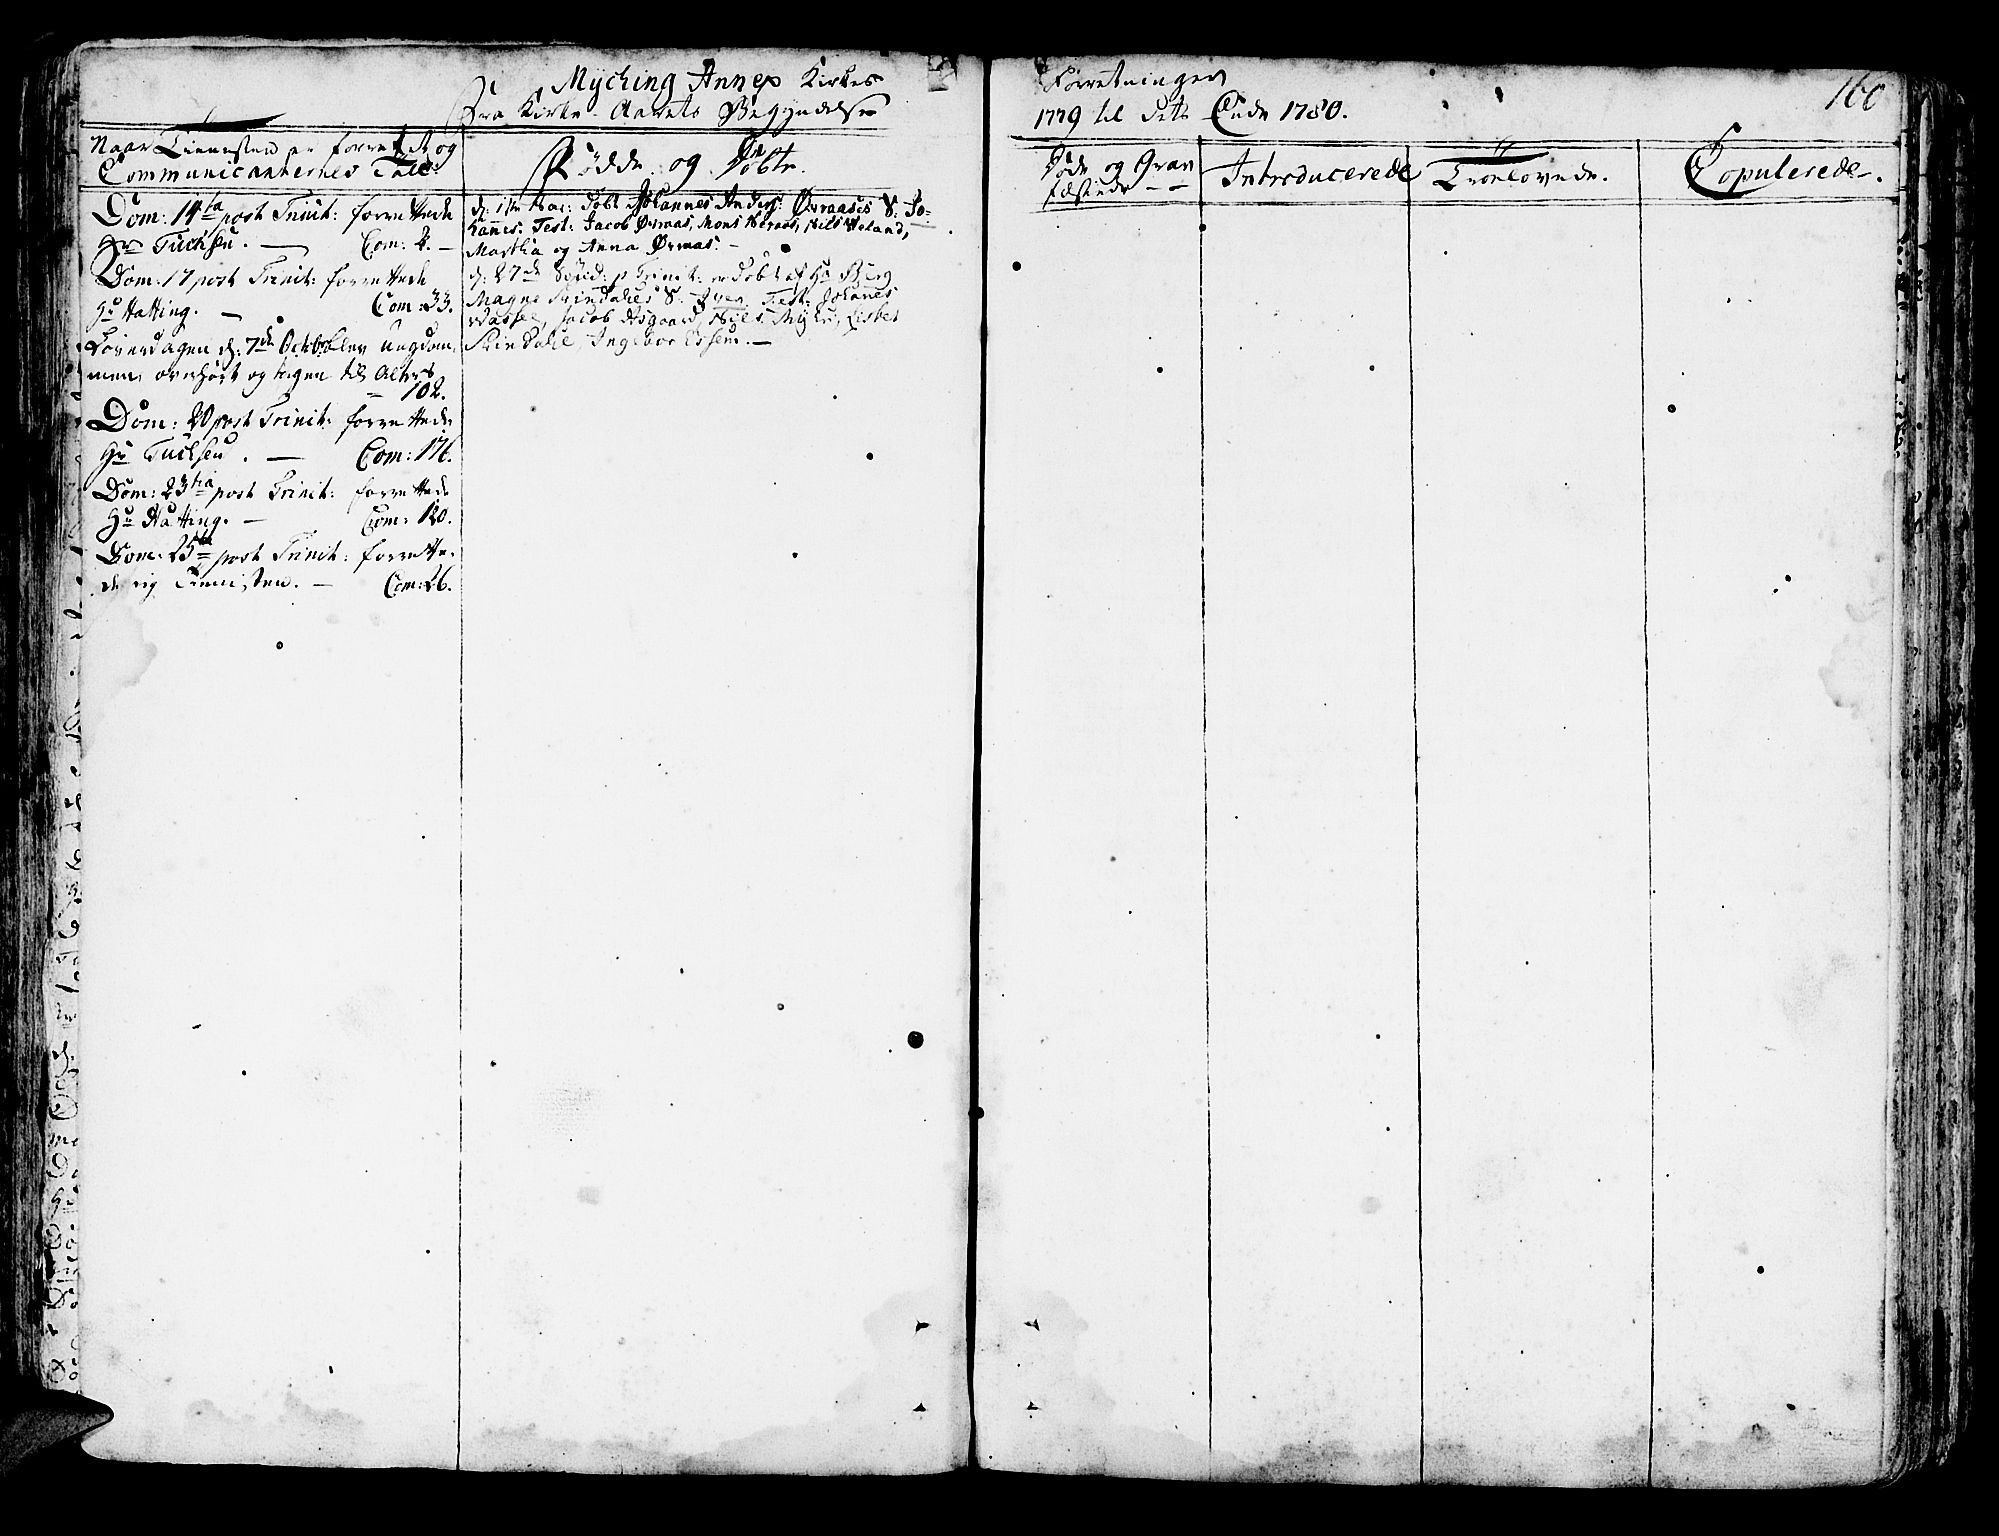 Myching Annex Kirkes Forretninger
160
Fra Kirke-Aarets Begyndelse 1779 til dets Ende 1780.
Naar Tienesten er forrettet og
Communicanternes Tall:
Fødde og Døbte.
Døde og Grav
fæstede - -
Introducerede
Troelovede.
Copulerede.
Dom: 14ta post Trinit: forrettede
Hr Tuchsen. — Com: 2. —
Dom: 17 post Trinit: forrettede
Hr Hatting. — Com: 33.
Løverdagen d: 7de Octobr blev Ungdom-
men overhørt og tagen til Alters
- 102.
Dom: 20 post Trinit: forrettede
Hr Tuchsen. — Com: 176.
Dom: 23tia post Trinit: forrettede
Hr Hatting. — Com: 120.
Dom: 25ta post Trinit: forrette-
de ieg Tienisten. — Com: 26.
døbt Johannes Anders: S: Jo-
hanes. Test: Jacob Ørmaas, Mons Nils Veland,
Martha og Anna Ørmas. —
d: 27de Sønd: p Trinit: er døbt af Hr
Magne Skindalies S. Iver. Test: Johanes
Jacob Asgaard, Nils Lisbet
Skindalie, Ingebor Essem. —